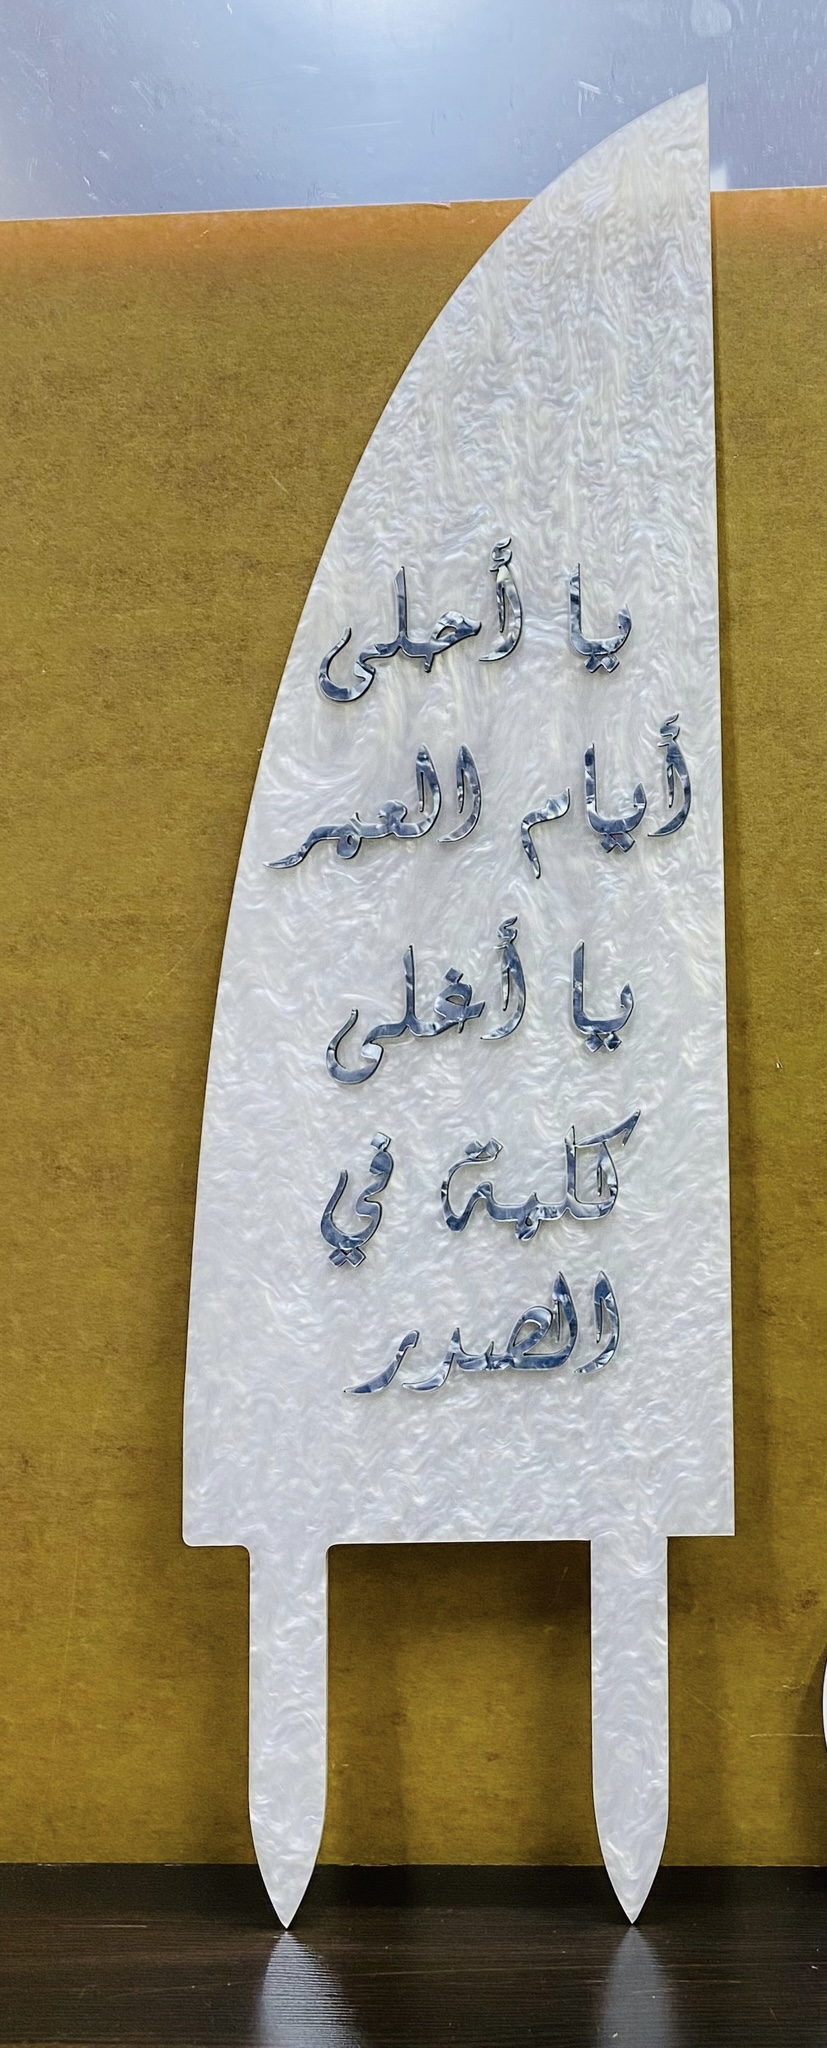 يا أحلى
أيام العمر
يا أغلى
كلمة في
الصدر